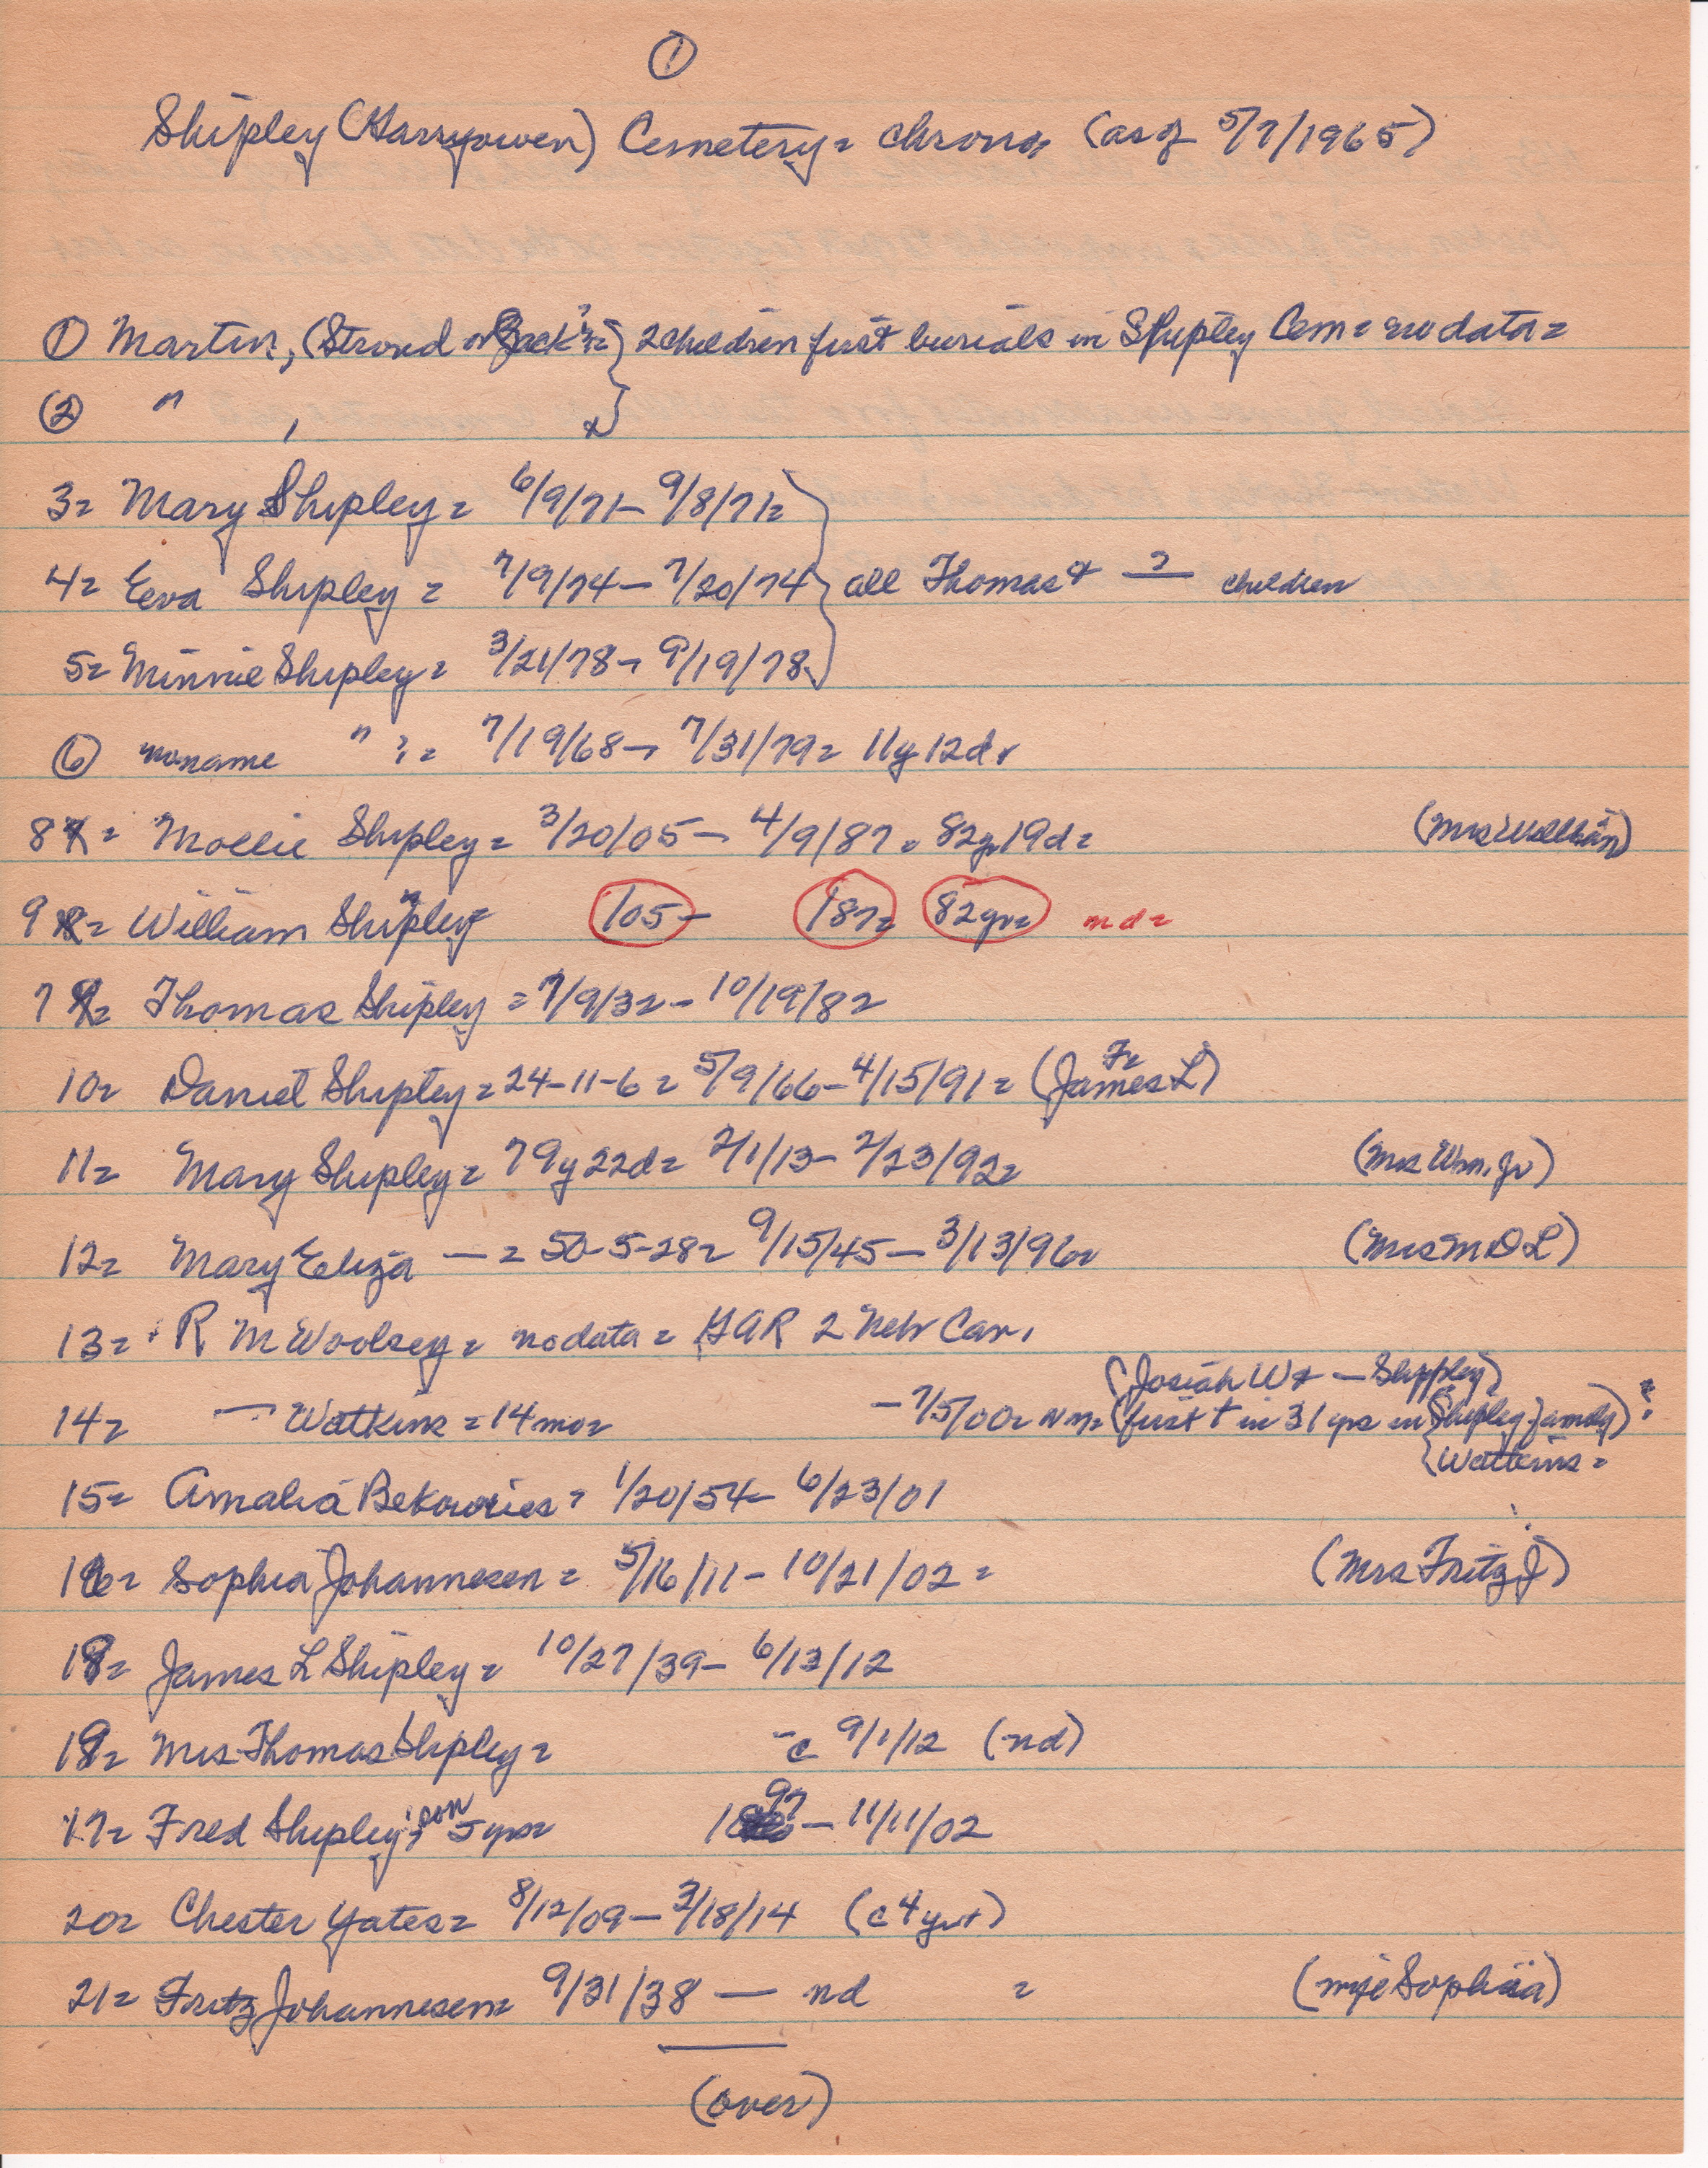 ①
Shipley (Harryowen) Cemetery = chrono, (as of 5/7/1965)
① Martin, (Stroud or Jack ?) = } 2 children first burials in Shipley Cem = no data =
② " ,
3 = Mary Shipley = 6/9/71 - 9/8/71 =
4 = Eeva Shipley = 7/9/74 - 7/20/74 } all Thomas & — ? — children
5 = Minnie Shipley = 3/21/78 - 9/19/78
⑥ noname " ? = 7/19/68 - 7/31/79 = 11y 12d
8 = Mollie Shipley = 3/20/05 - 4/9/87 = 82y 19d = (Mrs William)
9 = William Shipley = /05 - /87 = 82yr = nd =
7 = Thomas Shipley = 7/9/32 - 10/19/82
10 = Daniel Shipley = 24-11-6 = 5/9/66 - 4/15/91 = (F = James L)
11 = Mary Shipley = 79y 22d = 2/1/13 - 2/23/92 = (Mrs Wm. Jr)
12 = Mary Eliza — = 50-5-28 = 9/15/45 - 3/13/96 = (Mrs M D L)
13 = R M Woolsey = no data = GAR 2 Nebr Cav.
(Josiah W & — Shippley)
14 = — Watkins = 14 mo = - 7/5/00 = (first † in 31 yrs in Shipley family) ?
{Watkins =
15 = Amalia Bekowies = 1/20/54 - 6/23/01
16 = Sophia Johannesen = 5/16/11 - 10/21/02 = (Mrs Fritz J)
18 = James L Shipley = 10/27/39 - 6/13/12
19 = Mrs Thomas Shipley = - c 9/1/12 (nd)
17 = Fred Shipley, son 5 yrs = 1897 - 11/11/02
20 = Chester Yates = 8/12/09 - 3/18/14 (c 4 yr +)
21 = Fritz Johannesen = 9/31/38 — nd = (wife Sophia)
(over)